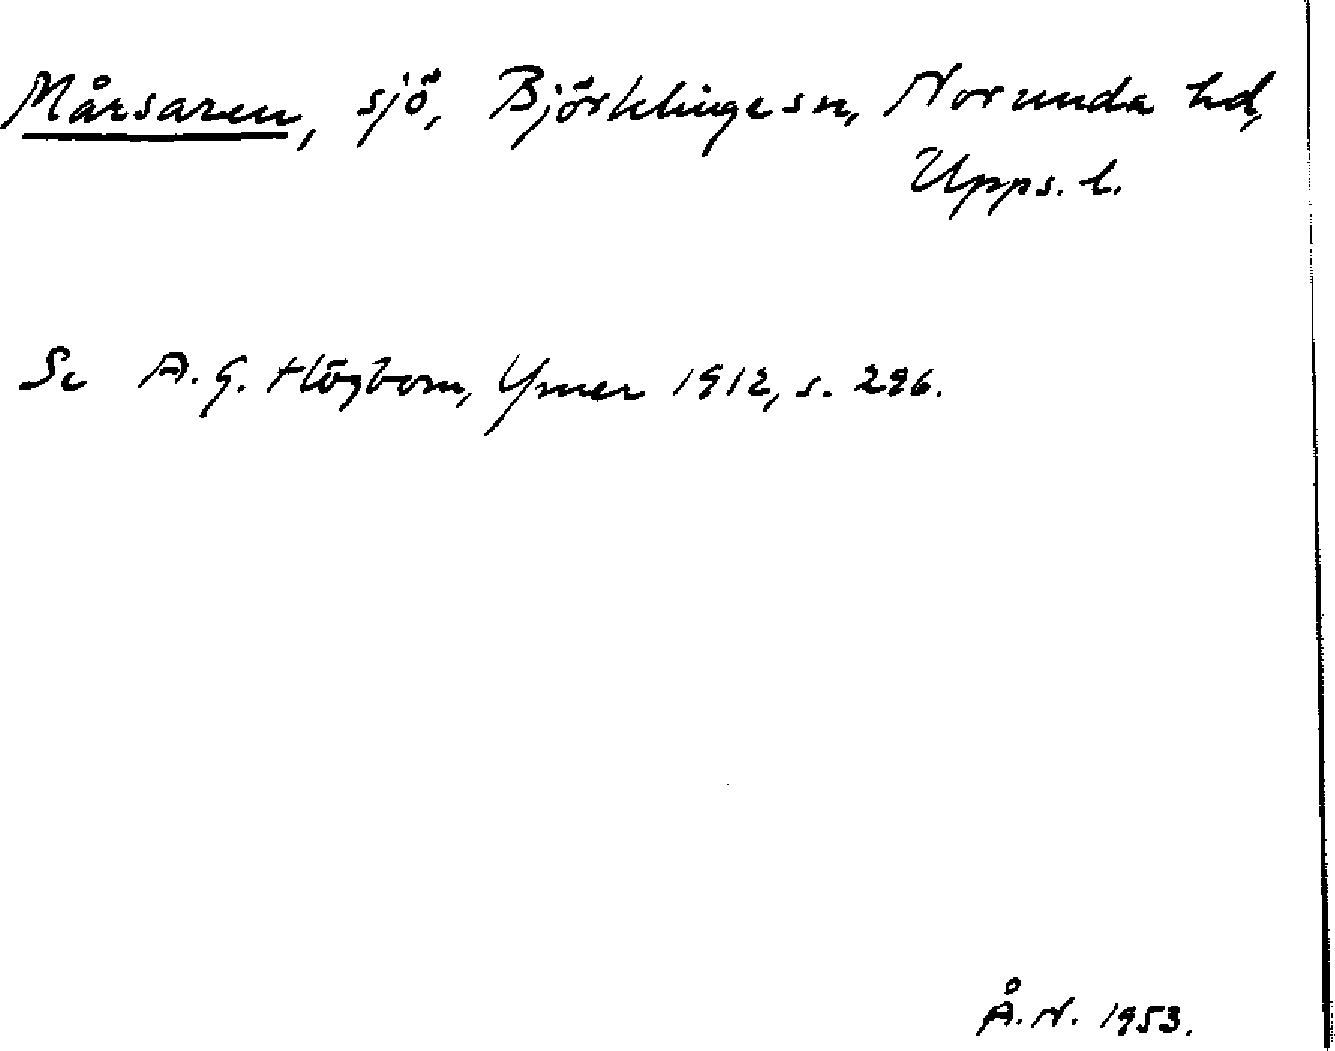 Mårsaren, sjö, Björklinge sn, Norunda hd,
Upps. l.
Se A. G. Högbom, Ymer 1912, s. 296.
Å. N. 1953.